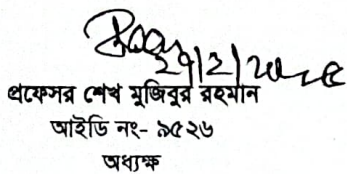 ২৭/২/২০২৫
প্রফেসর শেখ মুজিবুর রহমান
আইডি নং- ৯৫২৬
অধ্যক্ষ